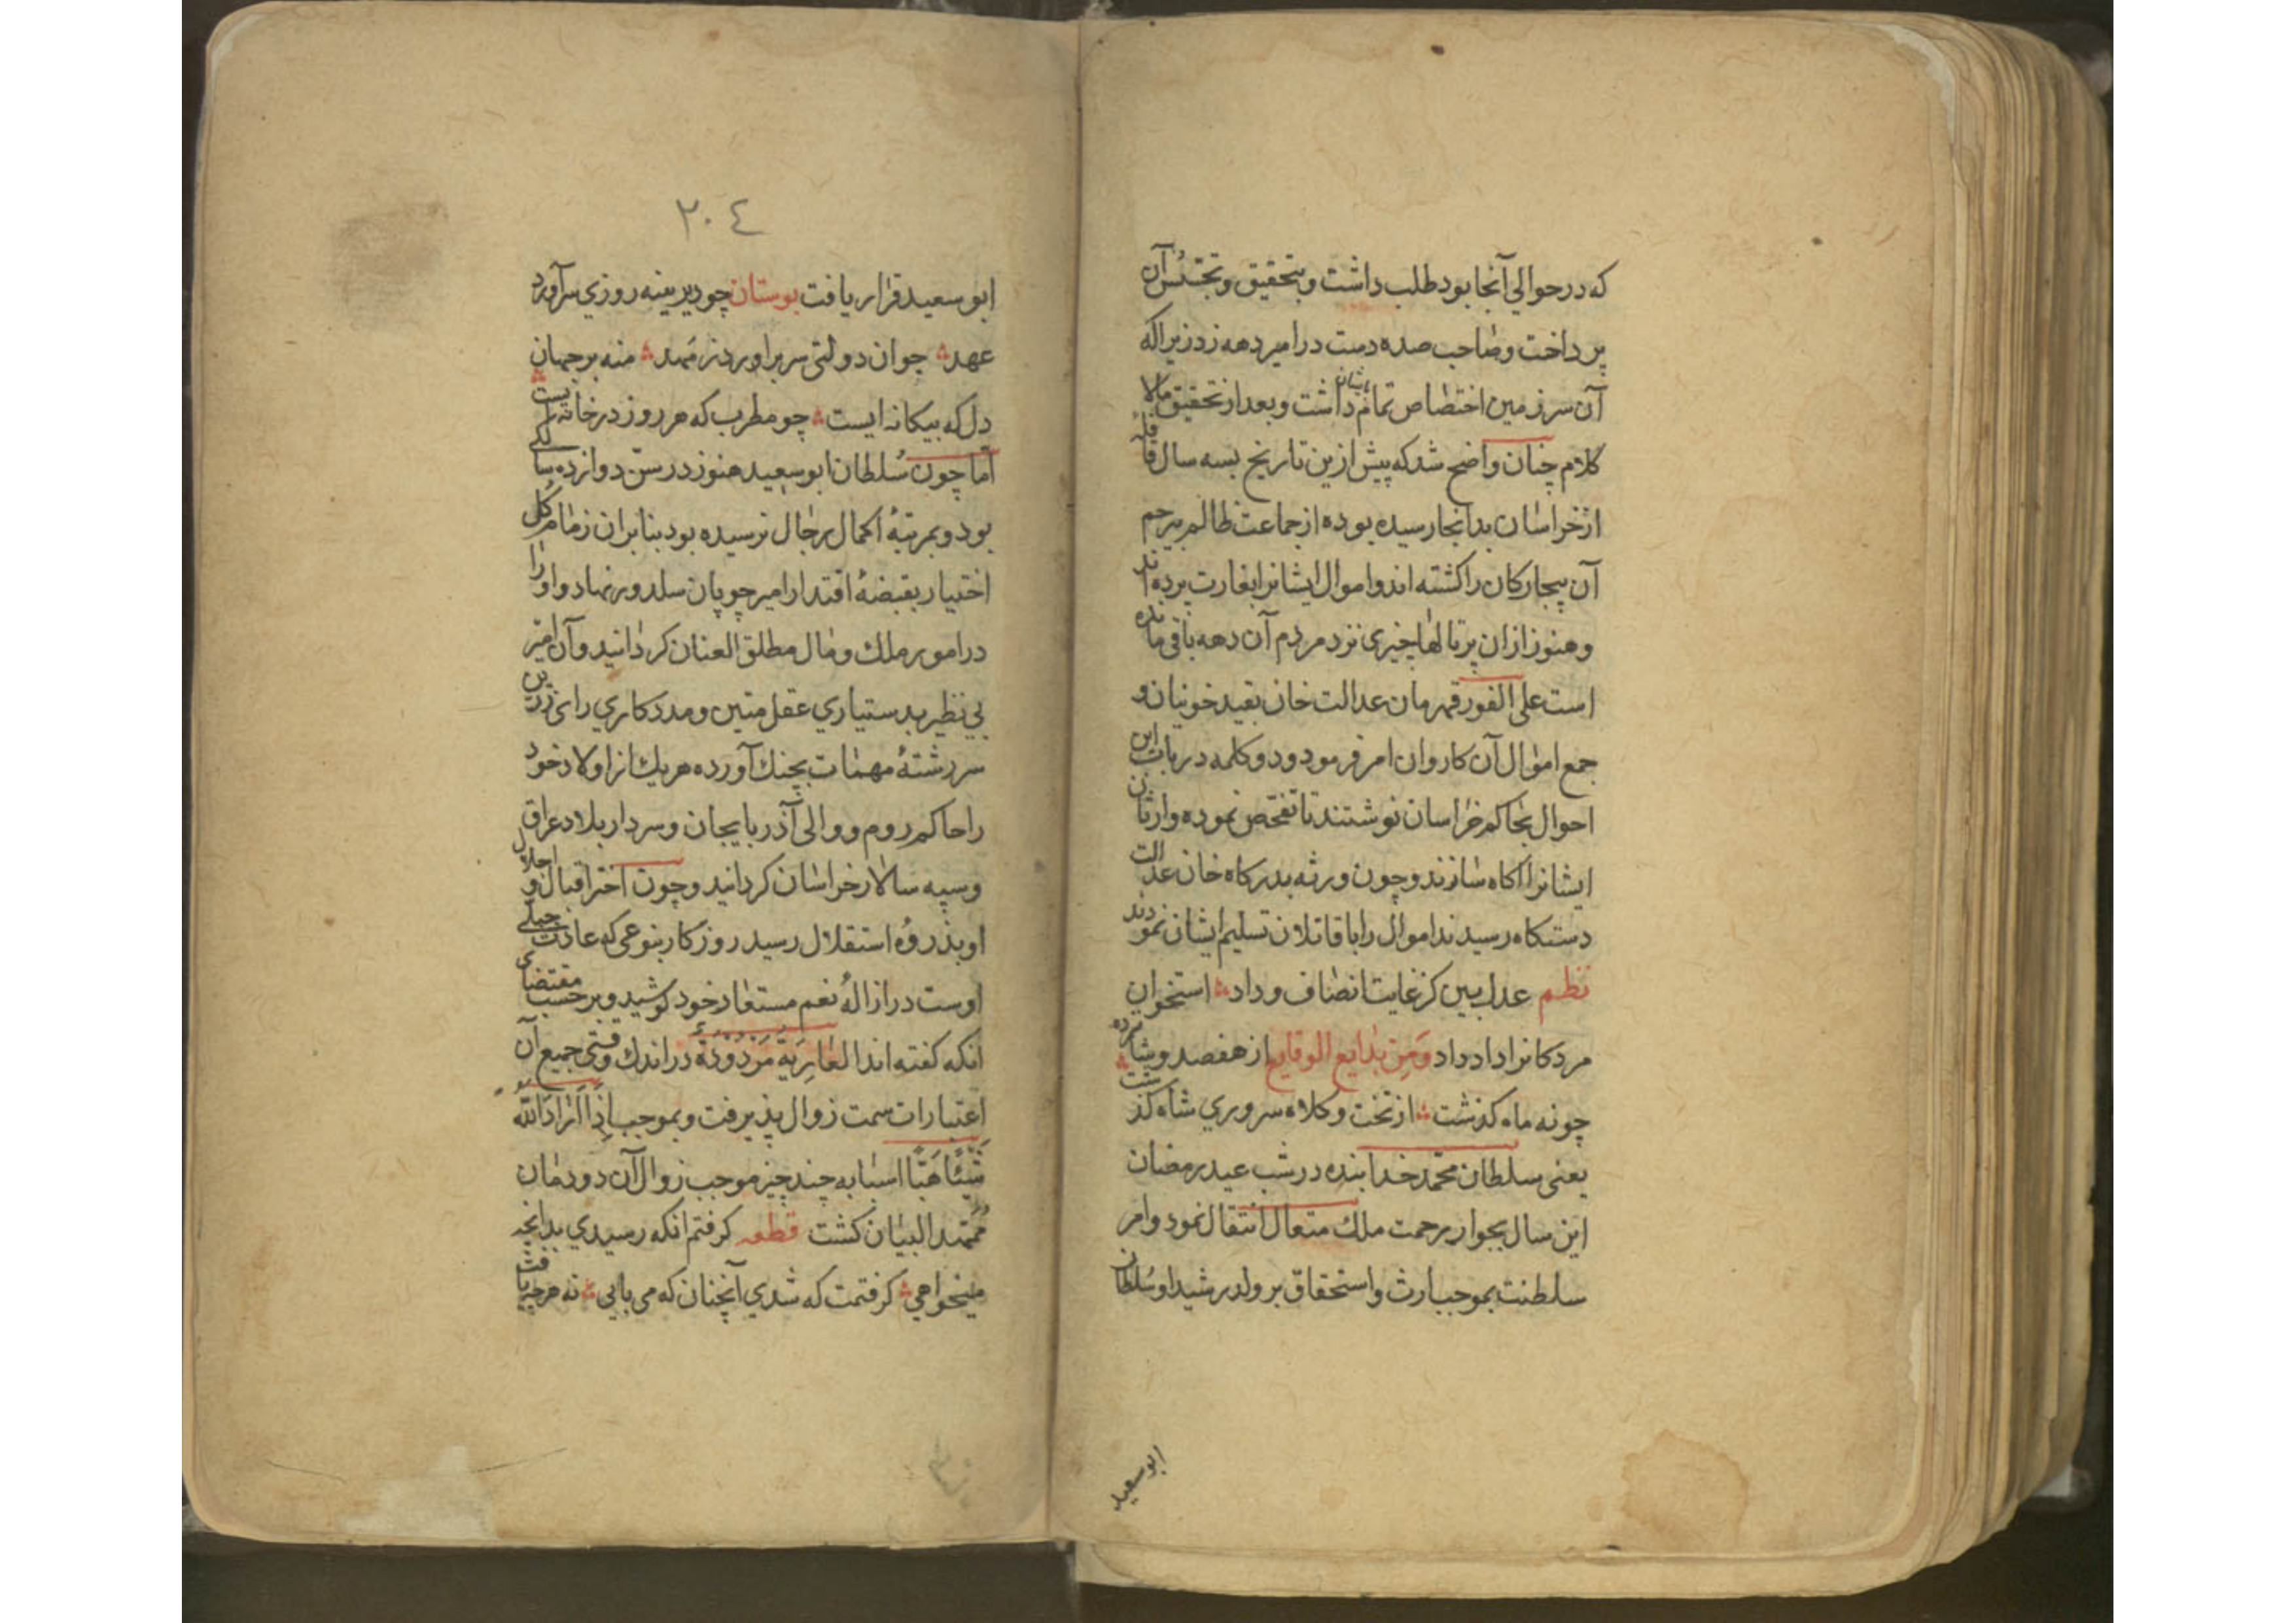 که در حوالي آنجا بود طلب داشت و بتحقیق و تجسّس آن
پرداخت و صاحب صده دست در امیر دهه زد زیرا که
آن سرزمین اختصاص تمام بایشان داشت و بعد از تحقیق مالا
کلام چنان واضح شد که پیش ازین تاریخ بسه سال قافلهٔ
از خراسان بدانجا رسیده بوده از جماعت ظالم بیرحم
آن بیچارکان را کشته اند و اموال ایشانرا بغارت برده اند
و هنوز ازان پرتالها چیزی نزد مردم آن دهه باقی مانده
است علی الفور قهرمان عدالت خان بقید خونیان و
جمع اموال آن کاروان امر فرمود و دو کلمه در باب این
احوال بحاکم خراسان نوشتند تا تفحّص نموده وارثان
ایشانرا اکاه سازند و چون ورثه بدرکاه خان عدالت
دستکاه رسیدند اموال را با قاتلان تسلیم ایشان نمودند
نظم عدل بین کز غایت انصاف و داد استخوان
مردکانرا داد داد وَمِن بدایع الوقایع از هفصد و شانزده
چو نه ماه کذشت از تخت و کلاه سروري شاه کذشت
یعنی سلطان محمّد خدابنده در شب عید رمضان
این سال بجوار رحمت ملک متعال انتقال نمود و امر
سلطنت بموجب ارث و استحقاق بر ولد رشید او سُلطان
ابو سعید
٢٠٤
ابو سعید قرار یافت بوستان چو دیرینه روزي سرآورد
عهد جوان دولتی سر براورد ز مهد منه بر جهان
دل که بیکانه ایست چو مطرب که هر روز در خانه ایست
امّا چون سُلطان ابو سعید هنوز در سنّ دوازده سالکے
بود و بمرتبهٔ اکمال رجال نرسیده بود بنابران زمام کُل
اختیار بقبضهٔ اقتدار امیر چوپان سلدوز نهاد و او را
در امور ملك و مال مطلق العنان کردانید و آن امیر
بي نظیر بدستیاري عقل متین و مددکاري رای زرین
سررشتهٔ مهمّات بچنك آورده هر یك از اولاد خود
را حاکم روم و والی آذربایجان و سردار بلاد عراق
و سپه سالار خراسان کردانید و چون اختر اقبال و اجلال
او بذروهٔ استقلال رسید روزکار بنوعی که عادت جبلّے
اوست در ازالهٔ نعم مستعار خود کوشید و بر حسب مقتضای
انکه کفته اند العَارِیَةُ مَرْدُودَةٌ در اندك وقتی جمیع آن
اعتبارات سمت زوال پذیرفت و بموجب اِذَا اَرَادَ اللّه
شَیْئًا هَیَّأَ اسبابه چند چیز موجب زوال آن دودمان
مُمّهد البنیان کشت قطعه کرفتم انکه رسیدي بدانچه
میخواهي کرفتمت که شدي آنچنان که می بایي نه هر چه یافت